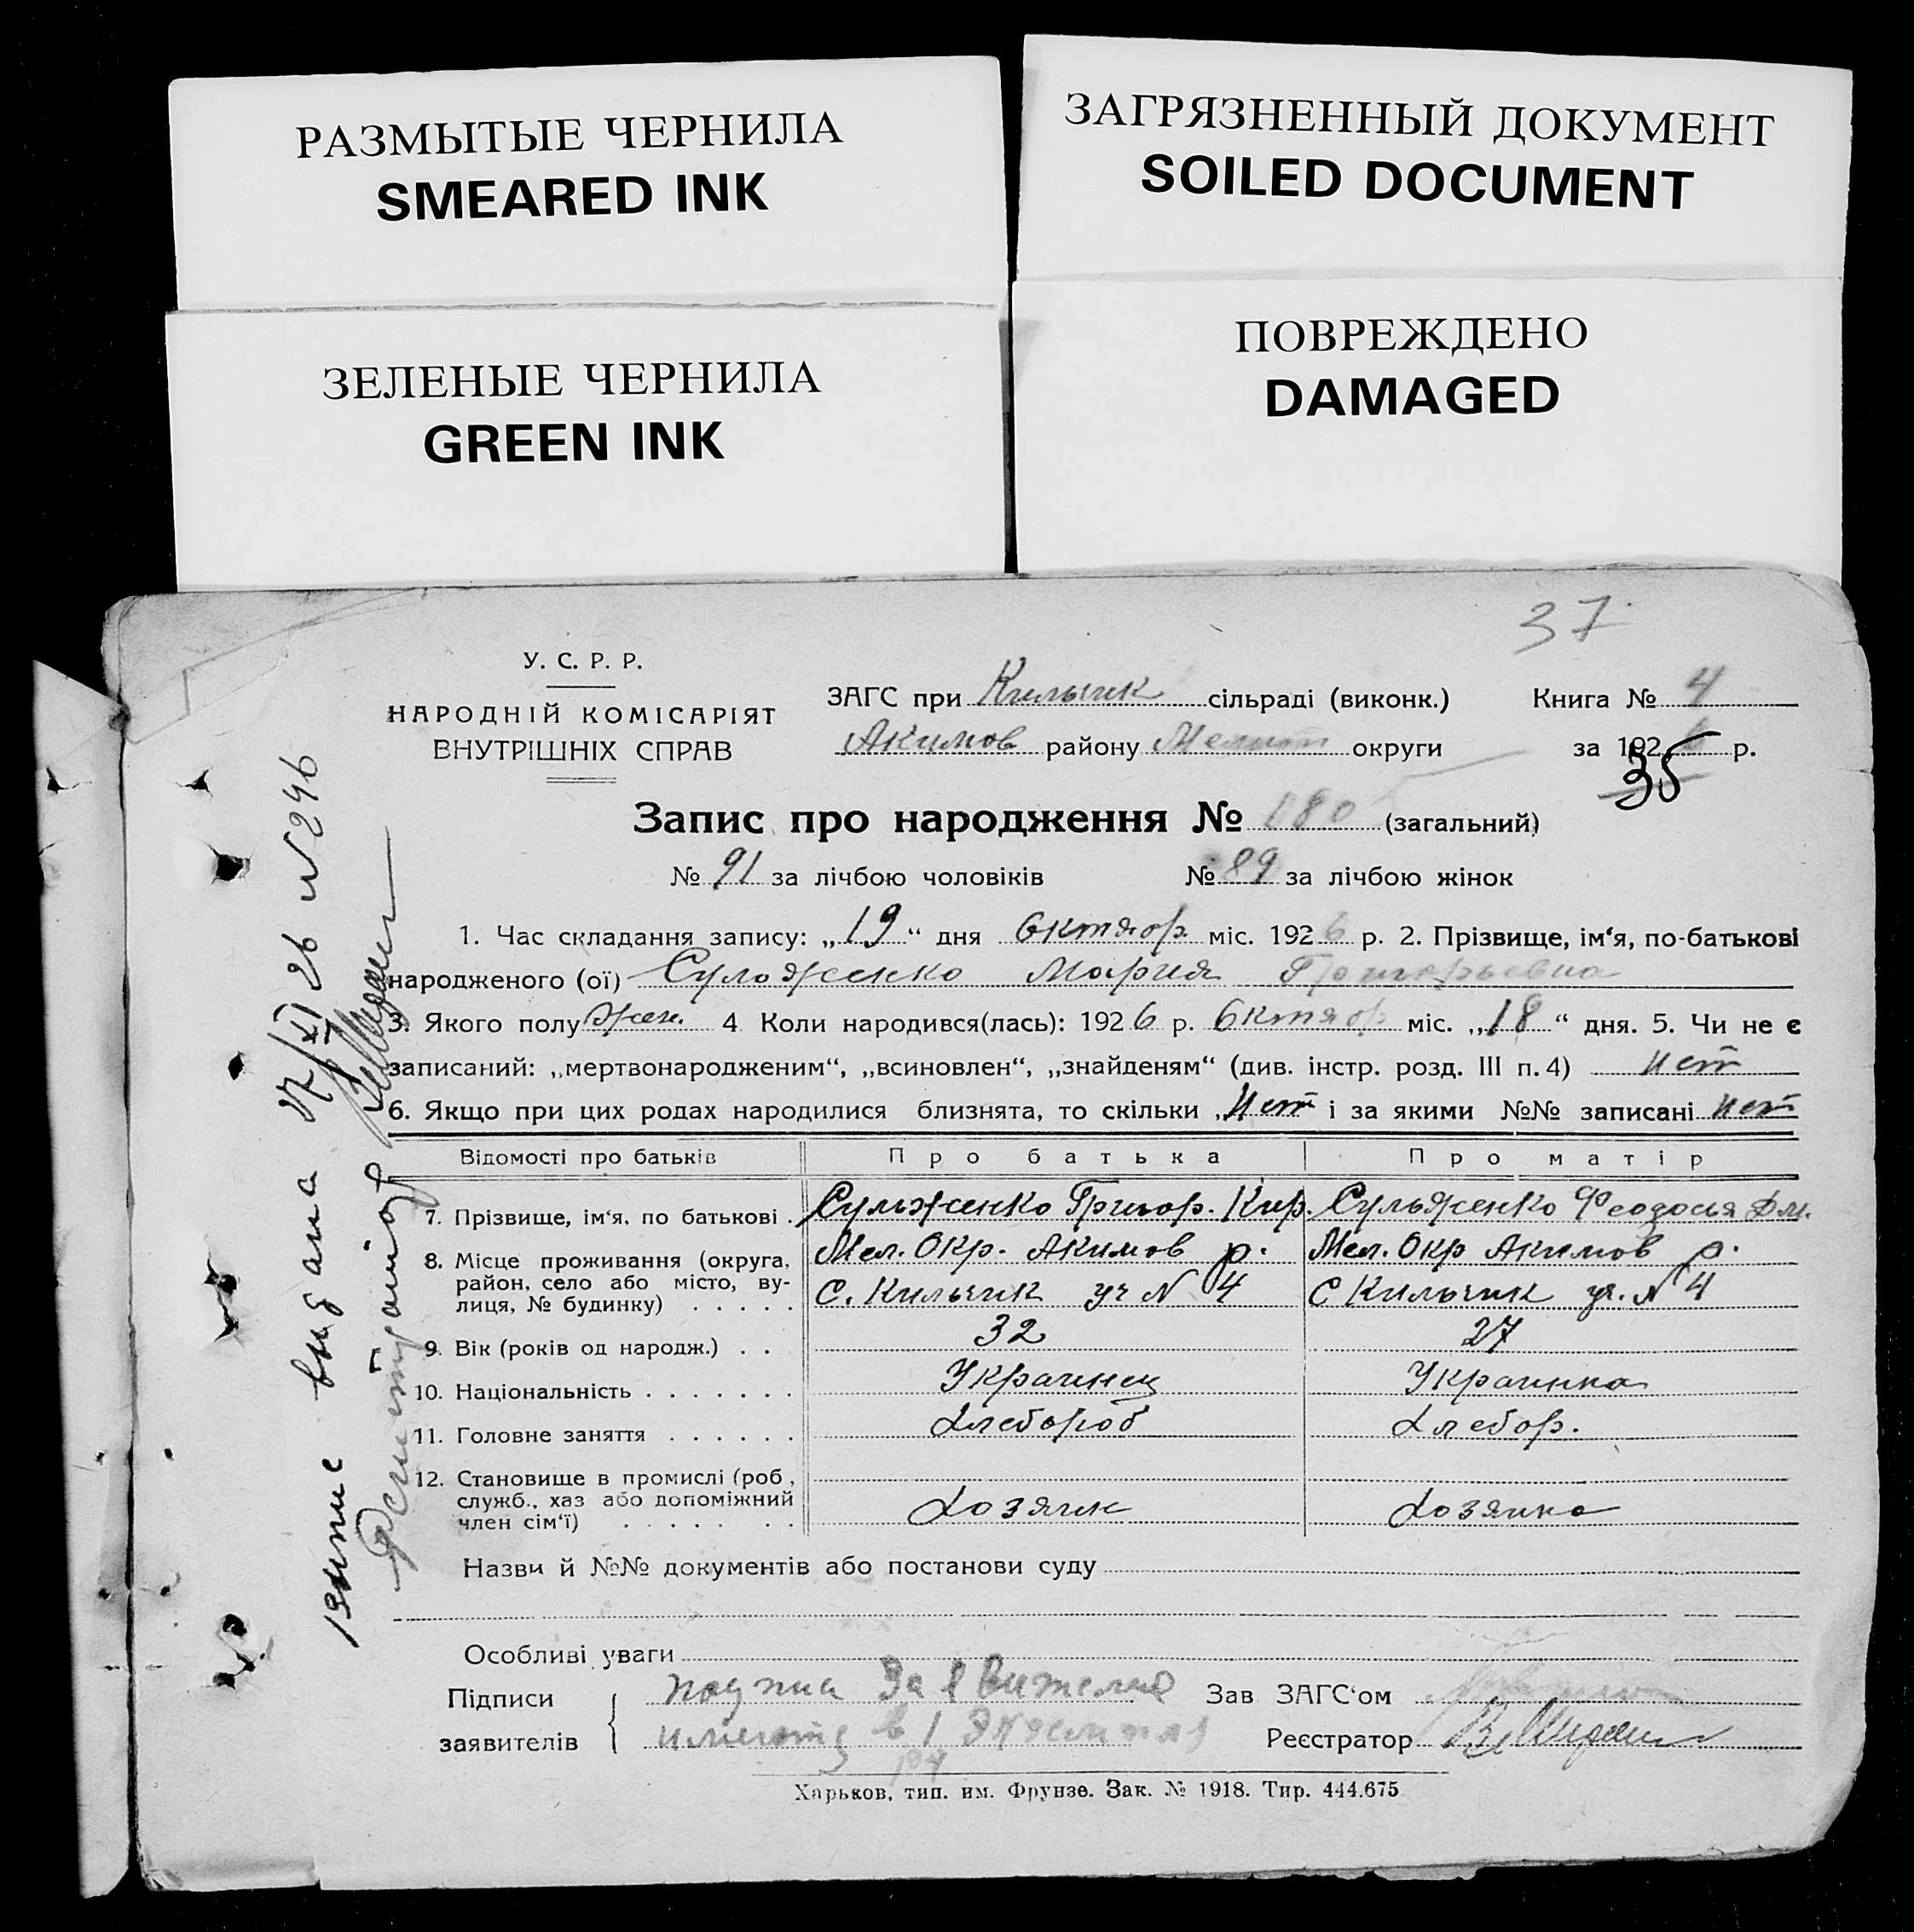 РАЗМЫТЫЕ ЧЕРНИЛА
SMEARED INK
ЗАГРЯЗНЕННЫЙ ДОКУМЕНТ
SOILED DOCUMENT
ЗЕЛЕНЫЕ ЧЕРНИЛА
GREEN INK
ПОВРЕЖДЕНО
DAMAGED
37
У. С. Р. Р.
НАРОДНІЙ КОМІСАРІЯТ
ВНУТРІШНІХ СПРАВ
ЗАГС при Кильчик сільраді (виконк.) Книга № 4
Акимов району Мелит округи за 1926 р.
35
Запис про народження № 180 (загальний)
№ 91 за лічбою чоловіків № 89 за лічбою жінок
1. Час складання запису: „19“ дня Октябр. міс. 1926 р. 2. Прізвище, ім‘я, по-батькові
народженого (ої) Сульженко Мария Григорьевна
3. Якого полу жен. 4 Коли народився(лась): 1926 р. Октябр міс. „18“ дня. 5. Чи не є
записаний: „мертвонародженим“, „всиновлен“, „знайденям“ (див. інстр. розд. III п. 4) нет
6. Якщо при цих родах народилися близнята, то скільки нет і за якими №№ записані нет
Відомості про батьків Про батька Про матір
7. Прізвище, ім‘я, по батькові . Сульженко Григор. Кир. Сульженко Феодосья Дм.
8. Місце проживання (округа, район, село або місто, вулиця, № будинку) . . . . .
Мел. Окр. Акимов р. Мел. Окр Акимов р.
С. Кильчик уч N 4 С Кильчик уч. N 4
9. Вік (років од народж.) . . 32 27
10. Національність . . . . . . . Украинец Украинка
11. Головне заняття . . . . . . Хлебороб Хлебор.
12. Становище в промислі (роб, служб., хаз або допоміжний член сім‘ї) . . . . . . Хозяин Хозяика
Назви й №№ документів або постанови суду
Особливі уваги
Підписи заявителів
подписи заявителя
имеются в 1 экземпляр
Зав ЗАГС‘ом
Реєстратор
Харьков, тип. им. Фрунзе. Зак. № 1918. Тир. 444.675
выдана 17/XI 26 N 246